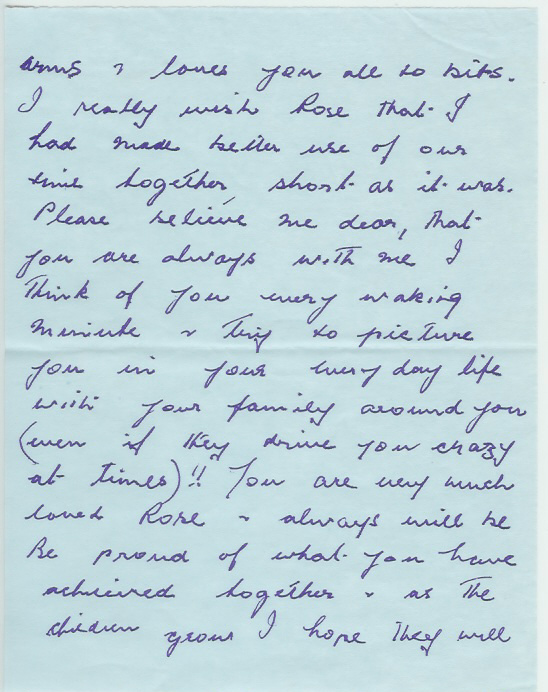 arms & loves you all to bits.
I really wish Rose that I
had made better use of our
time together short as it was.
Please believe me dear, that
you are always with me I
think of you every waking
minute & try to picture
you in your every day life
with your family around you
(even if they drive you crazy
at times)!! You are very much
loved Rose & always will be
Be proud of what you have
achieved together & as the
children grow I hope they will